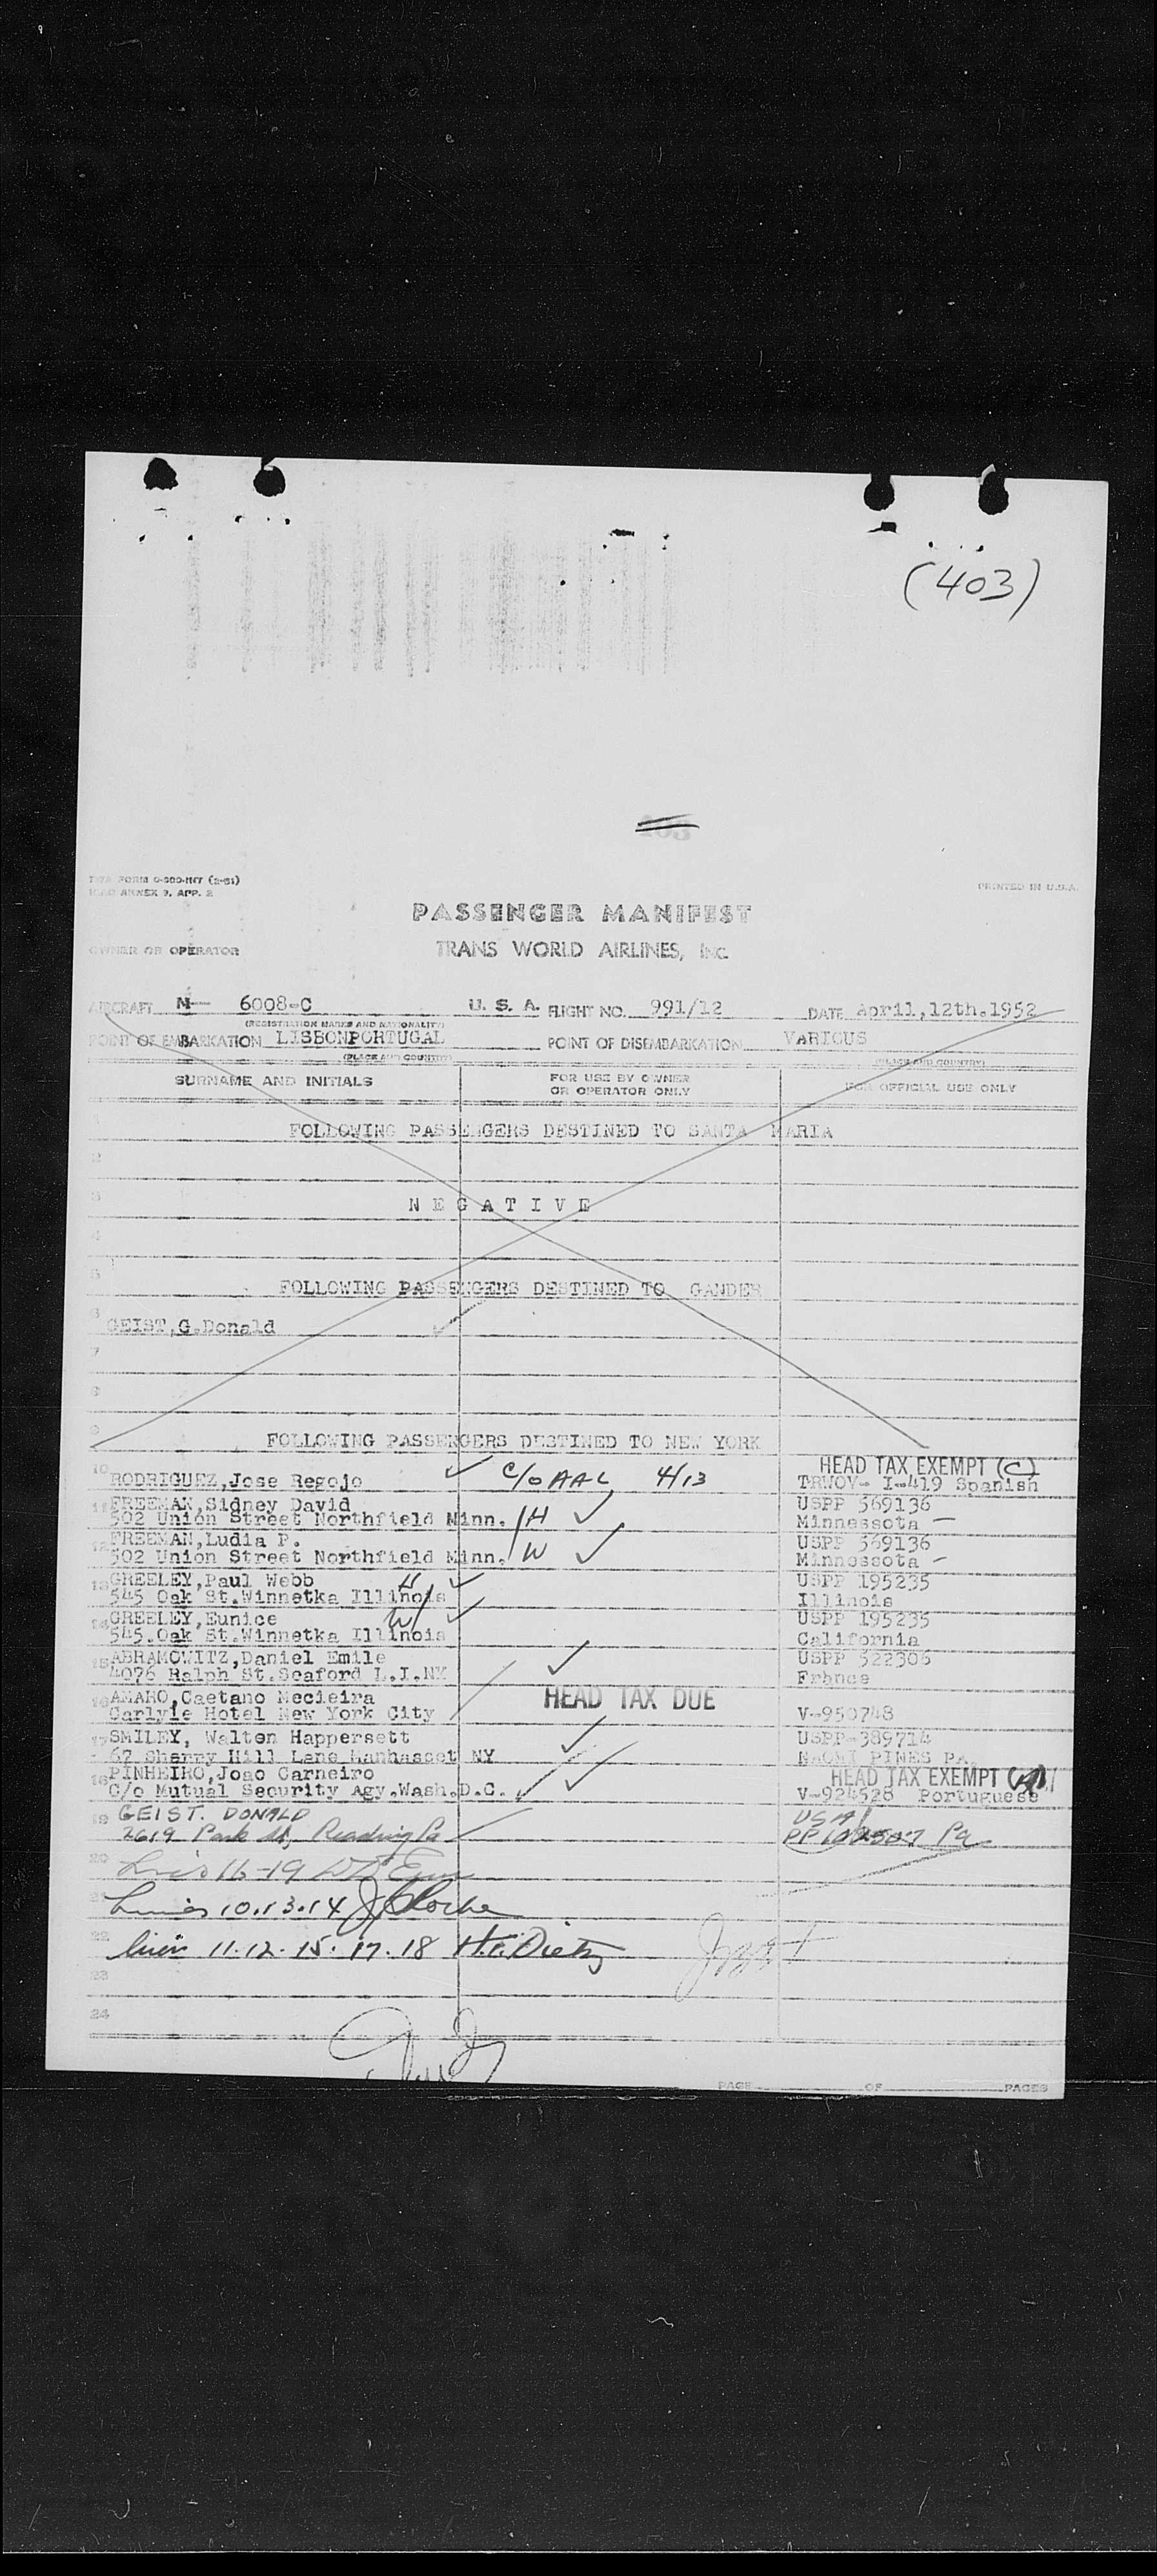 (403)
403
TWA FORM O-500-INT (2-51)
ICAO ANNEX 9, APP. 2
PRINTED IN U.S.A.
PASSENGER MANIFEST
OWNER OR OPERATOR
TRANS WORLD AIRLINES, INC.
AIRCRAFT N— 6008-C U. S. A. FLIGHT NO. 991/12 DATE April,12th.1952
(REGISTRATION MARKS AND NATIONALITY)
POINT OF EMBARKATION LISBONPORTUGAL POINT OF DISEMBARKATION VARIOUS
(PLACE AND COUNTRY) (PLACE AND COUNTRY)
SURNAME AND INITIALS FOR USE BY OWNER OR OPERATOR ONLY FOR OFFICIAL USE ONLY
1
FOLLOWING PASSENGERS DESTINED TO SANTA MARIA
2
3 N E G A T I V E
4
5
FOLLOWING PASSENGERS DESTINED TO GANDER
6
GEIST,G.Donald
7
8
9
FOLLOWING PASSENGERS DESTINED TO NEW YORK
HEAD TAX EXEMPT (C)
10 RODRIGUEZ,Jose Regojo C/O AAL 4/13 TRWOV- I-419 Spanish
11 FREEMAN,Sidney David USPP 369136
502 Union Street Northfield Minn. H Minnessota —
12 FREEMAN,Ludia P. USPP 369136
502 Union Street Northfield Minn. W Minnessota -
13 GREELEY,Paul Webb H USPP 195235
545 Oak St.Winnetka Illinois Illinois
14 GREELEY,Eunice W USPP 195235
545.Oak St.Winnetka Illinois California
15 ABRAMOWITZ,Daniel Emile USPP 322306
4076 Ralph St.Seaford L.I.NY France
16 AMARO,Caetano Mecieira HEAD TAX DUE
Carlyle Hotel New York City V-950748
17 SMILEY, Walton Happersett USPP-389714
67 Sherry Hill Lane Manhasset NY NAOMI PINES PA.
18 PINHEIRO,Joao Carneiro HEAD TAX EXEMPT
C/o Mutual Security Agy.Wash.D.C. V-924528 Portuguese
19 GEIST. DONALD USA
2619 Park St, Reading Pa PP Pa
20 Lines 16-19
21 Lines 10.13.14
22 lines 11.12.15.17.18 H.E. Dietz
23
24
PAGE OF PAGES